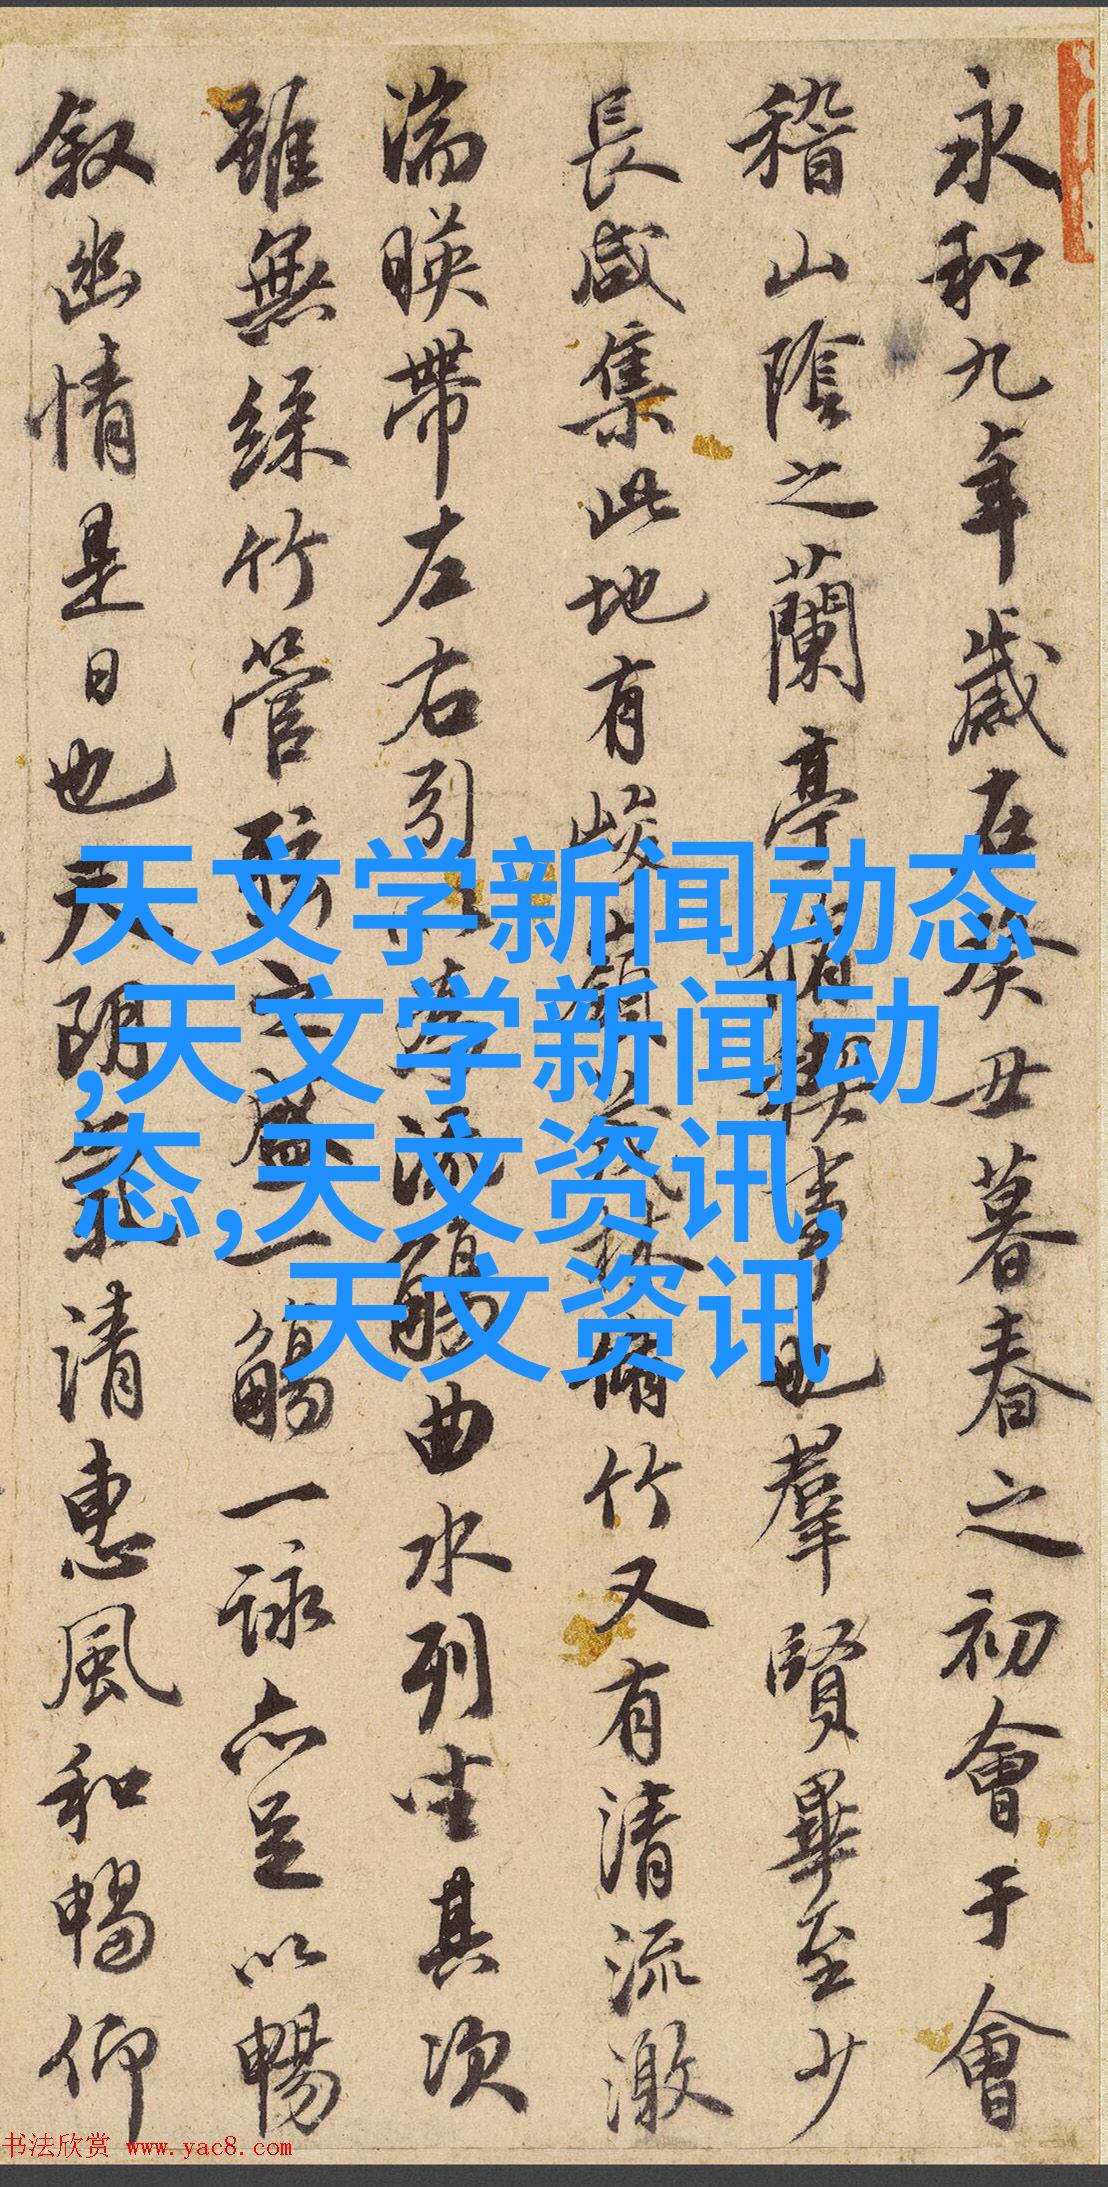 永和九年歲在癸丑暮春之初會于會
稽山陰之蘭亭脩稧事也羣賢畢至少
長咸集此地有峻領茂林脩竹又有清流激
湍暎帶左右引以為流觴曲水列坐其次
雖無絲竹管弦之盛一觴一詠亦足以暢
叙幽情是日也天朗氣清惠風和暢仰
天文学新闻动态
,天文学新闻动
态,天文资讯,
天文资讯
书法欣赏 www.yac8.com